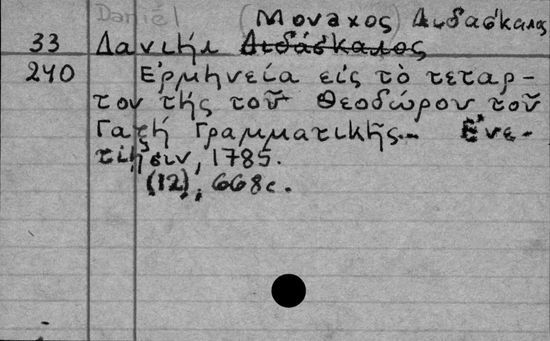 Daniel (Μοναχος) Διδασκαλος
33 Δανιήλ Διδάσκαλος
240 Ερμηνεία εἰς τὸ τεταρ-
τον τῆς τοῦ Θεοδώρου τοῦ
Γαζῆ Γραμματικῆς.. Ενε-
τίησιν, 1785.
(12), 668с.